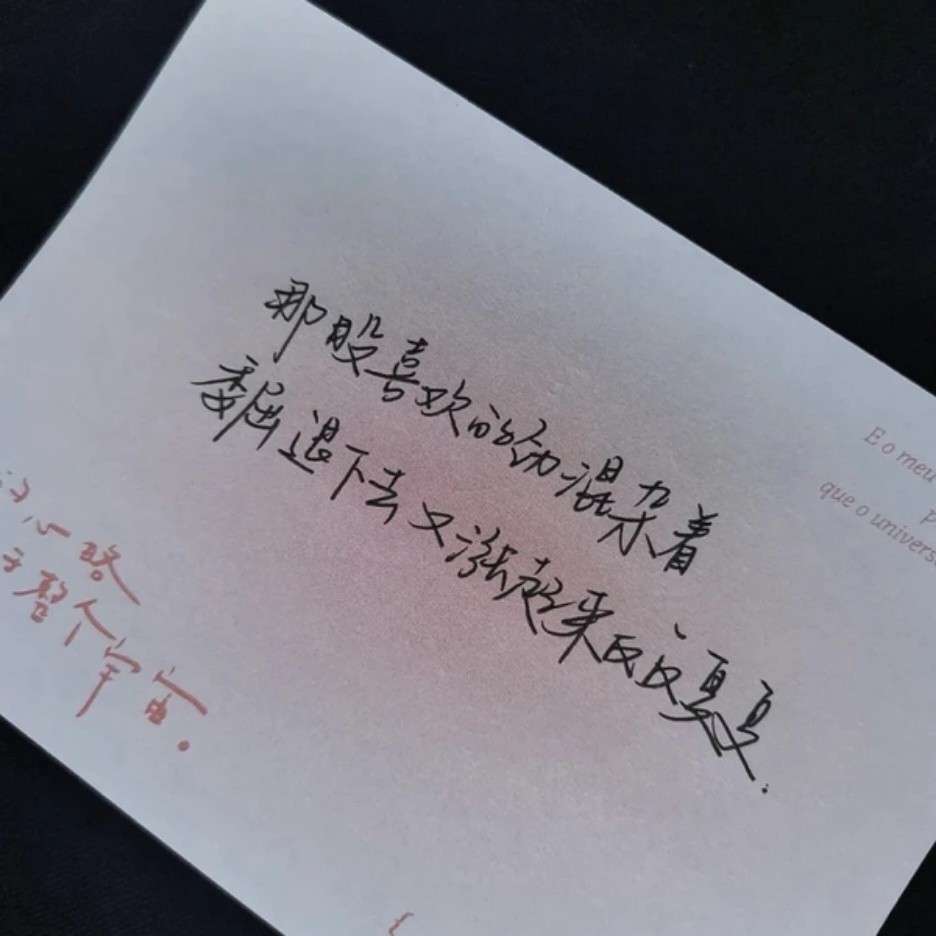 那股喜欢的劲混杂着
委屈退下去又涨起来反反复复.
E o meu
que o univers
心路
整个宇宙。